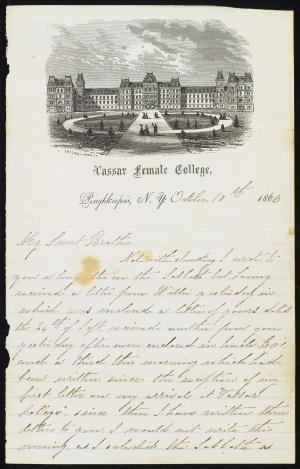 Vassar Female College,
Poughkeepsie, N. Y. October 10th 186
My Sweet Brother
Notwithstanding I wrote to
you a long letter on the Sabbath but having
received a letter from Willie yesterday in
which was enclosed a letter of yours dated
the 24th of Sept. received another from you
yesterday afternoon enclosed in
and a third this morning which had
been written since the reception of my
first letter on my arrival at Vassar
College, since then I have written three
letters to you. I would not write this
evening, as I consider the Sabbath as